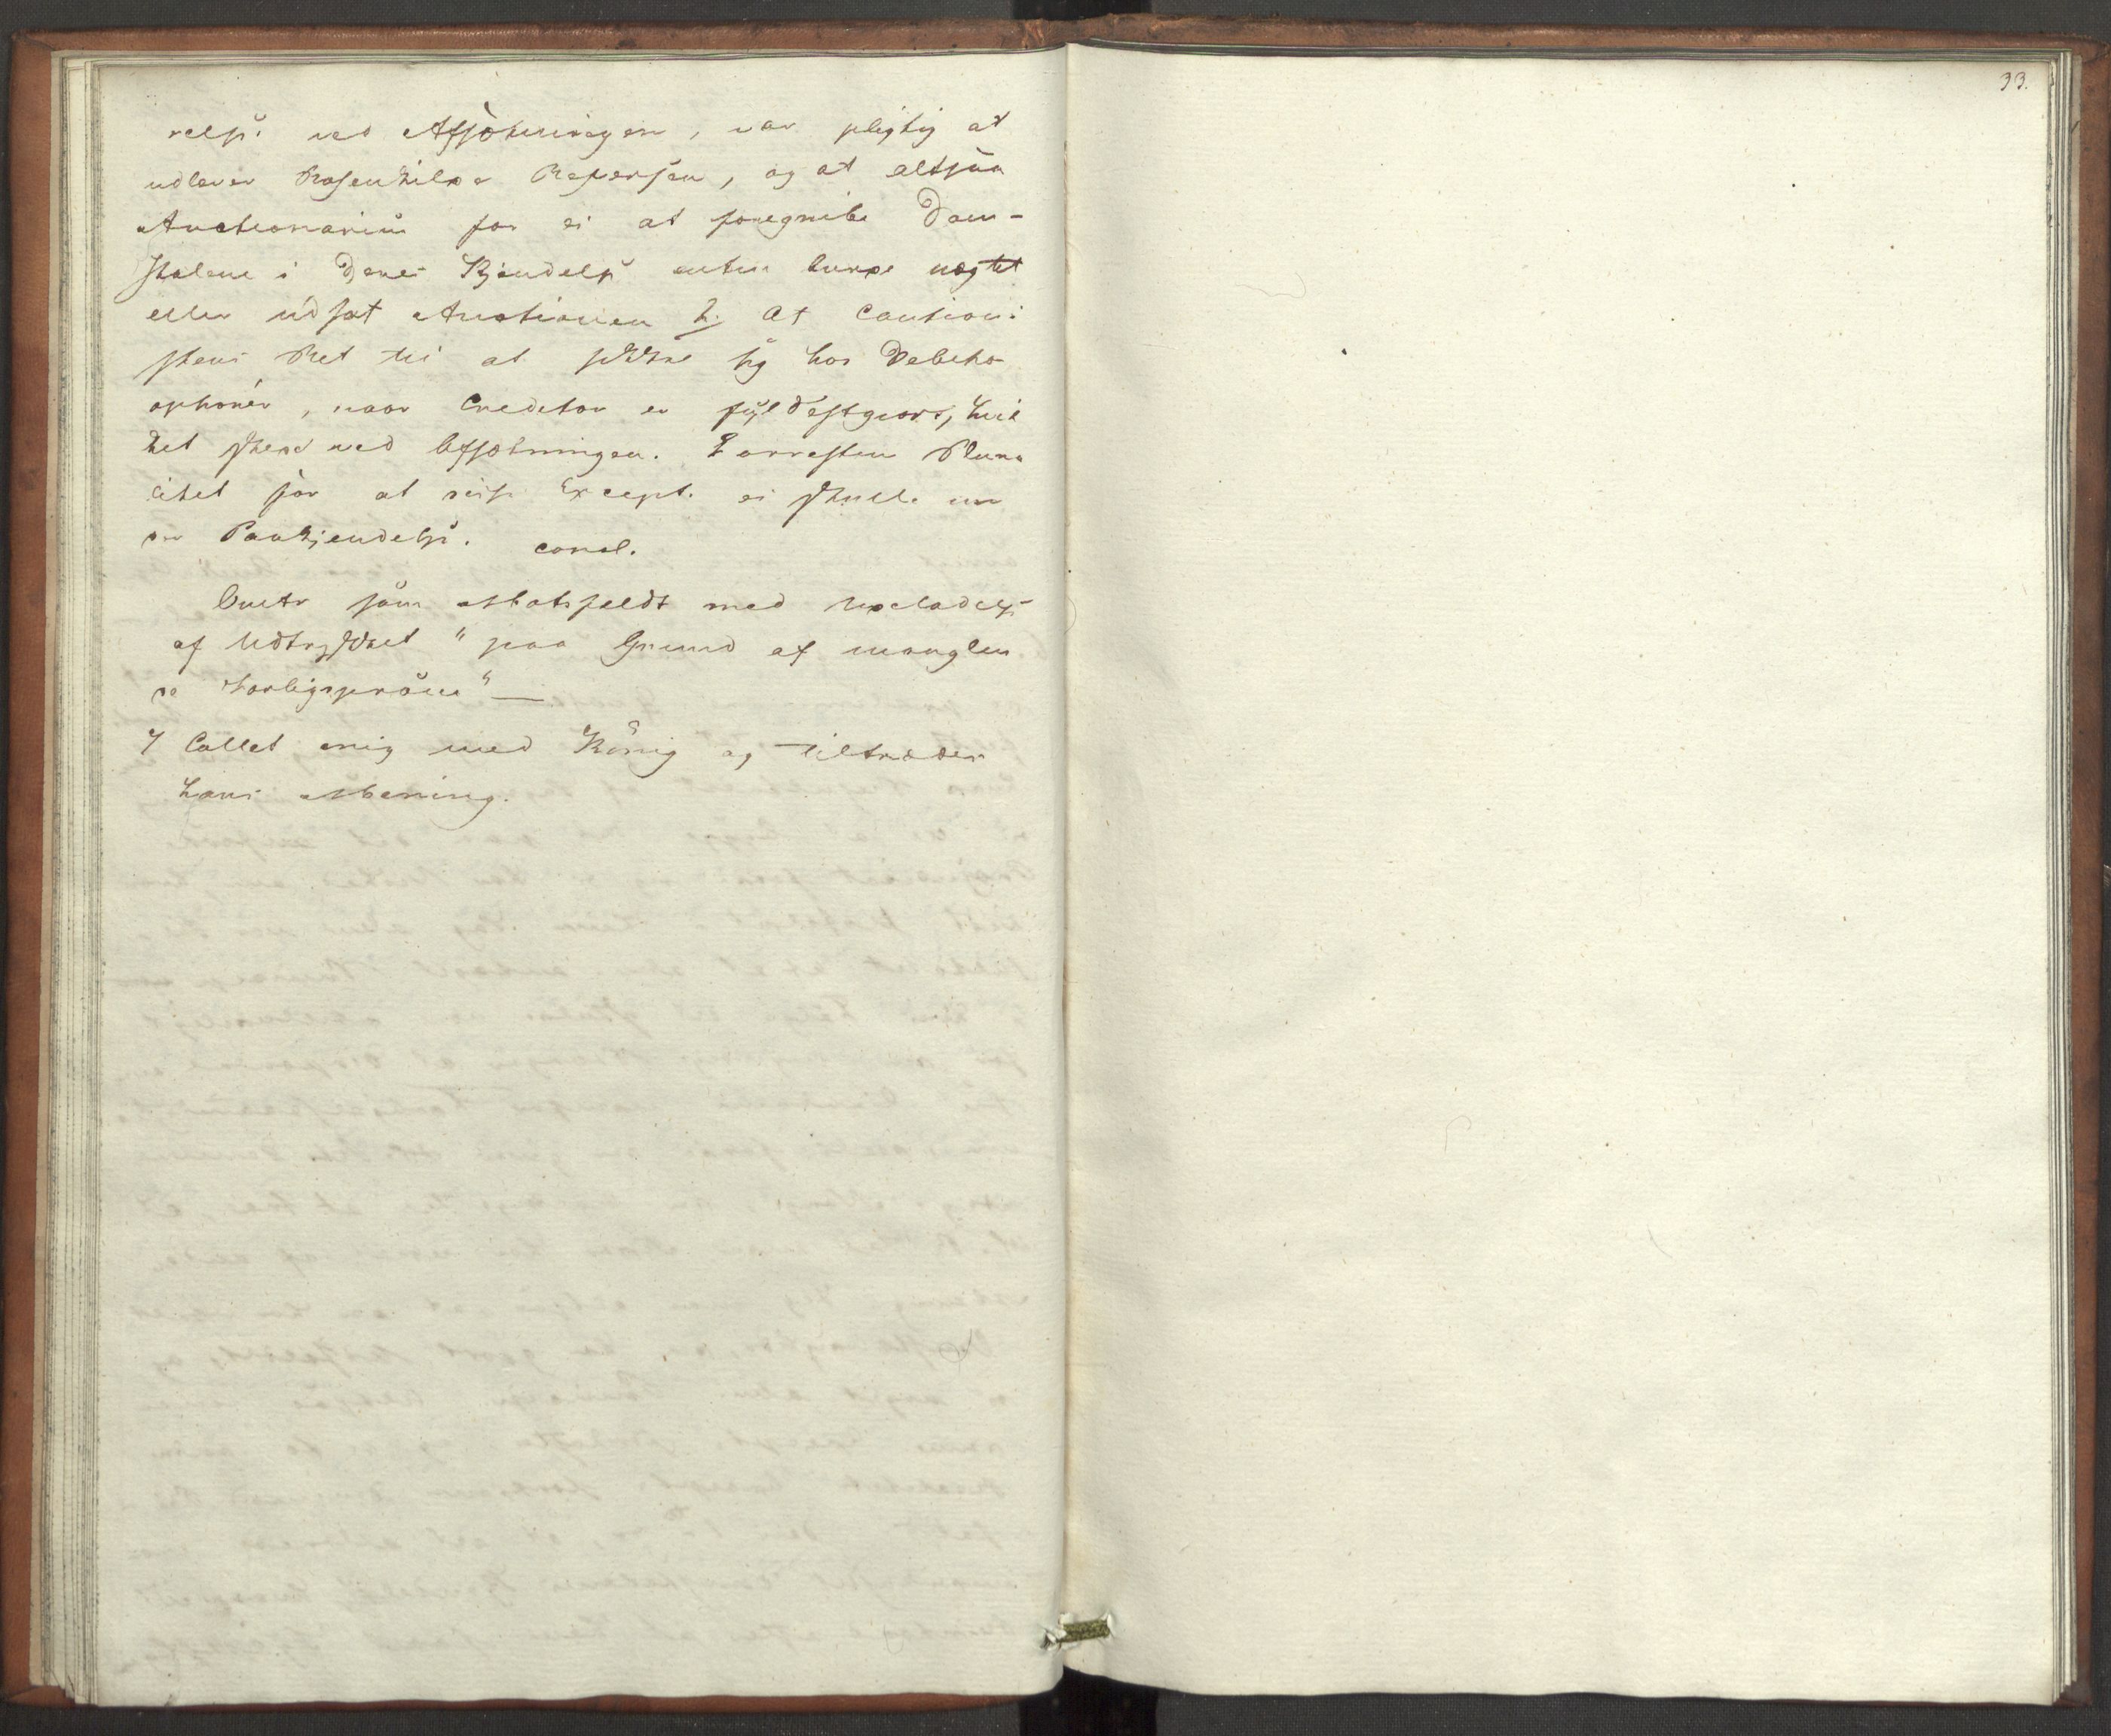 33.
relse ved Afsoningen, var pligtig at
udlever Rosenkilde Refersen, og at altsaa
Auctionarius for ei at foregribe Dom-
stolene i deres Kjendelse enten burde nægtet
eller udsat Auctionen 2. At Cautioni-
stens Ret til at søkke sig hos Debitor
ophører, naar Creditor er fyldestgiort, hvil
ket skeed ved Afsoningen. Forresten Plura
litet for at disse Except. ei skulle un
der Paakjendelse. concl.
Buetz som Motzfeldt med Udeladelse
af Udtrykket "paa Grund af manglen
de Forligsprøve" —
Y Collet enig med König og tiltræder
hans Mening.